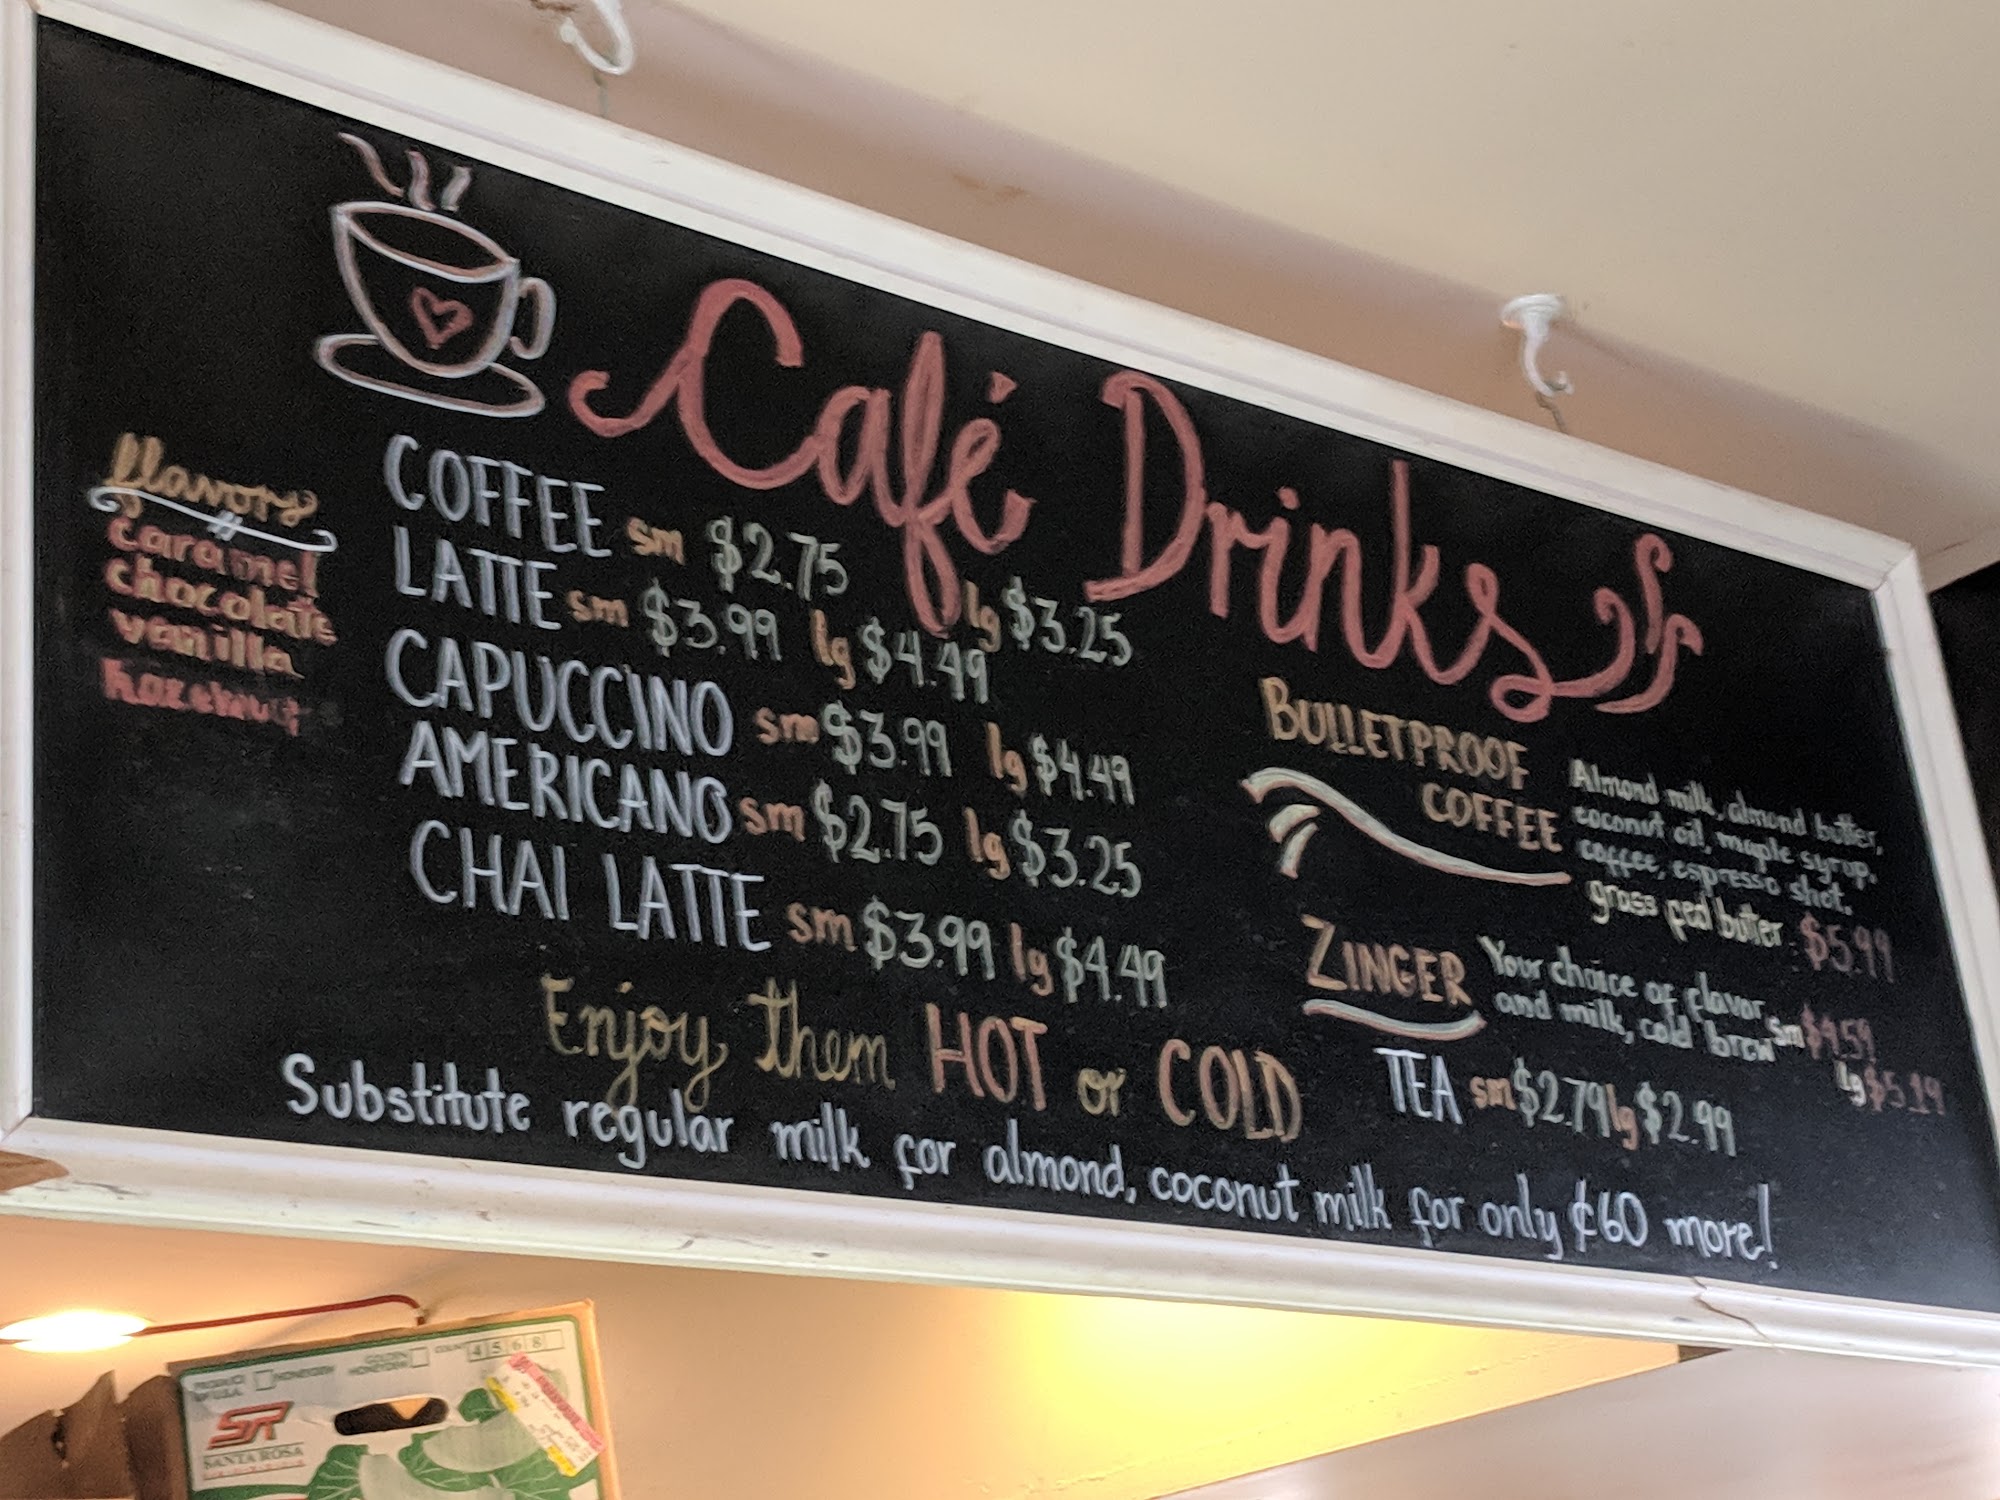 Café Drinks
flavors
caramel
chocolate
vanilla
hazelnut
COFFEE sm $2.75 lg $3.25
LATTE sm $3.99 lg $4.49
CAPUCCINO sm $3.99 lg $4.49
AMERICANO sm $2.75 lg $3.25
CHAI LATTE sm $3.99 lg $4.49
Enjoy them HOT or COLD
BULLETPROOF
COFFEE
Almond milk, almond butter,
coconut oil, maple syrup,
coffee, espresso shot.
grass fed butter $5.99
ZINGER
Your choice of flavor
and milk, cold brew sm $4.59
lg $5.19
TEA sm $2.79 lg $2.99
Substitute regular milk for almond, coconut milk for only ¢60 more!
PRODUCE
OF U.S.A.
HONEYDEW
GOLDEN
HONEYDEW
COUNT 4 5 6 8
SR
SANTA ROSA